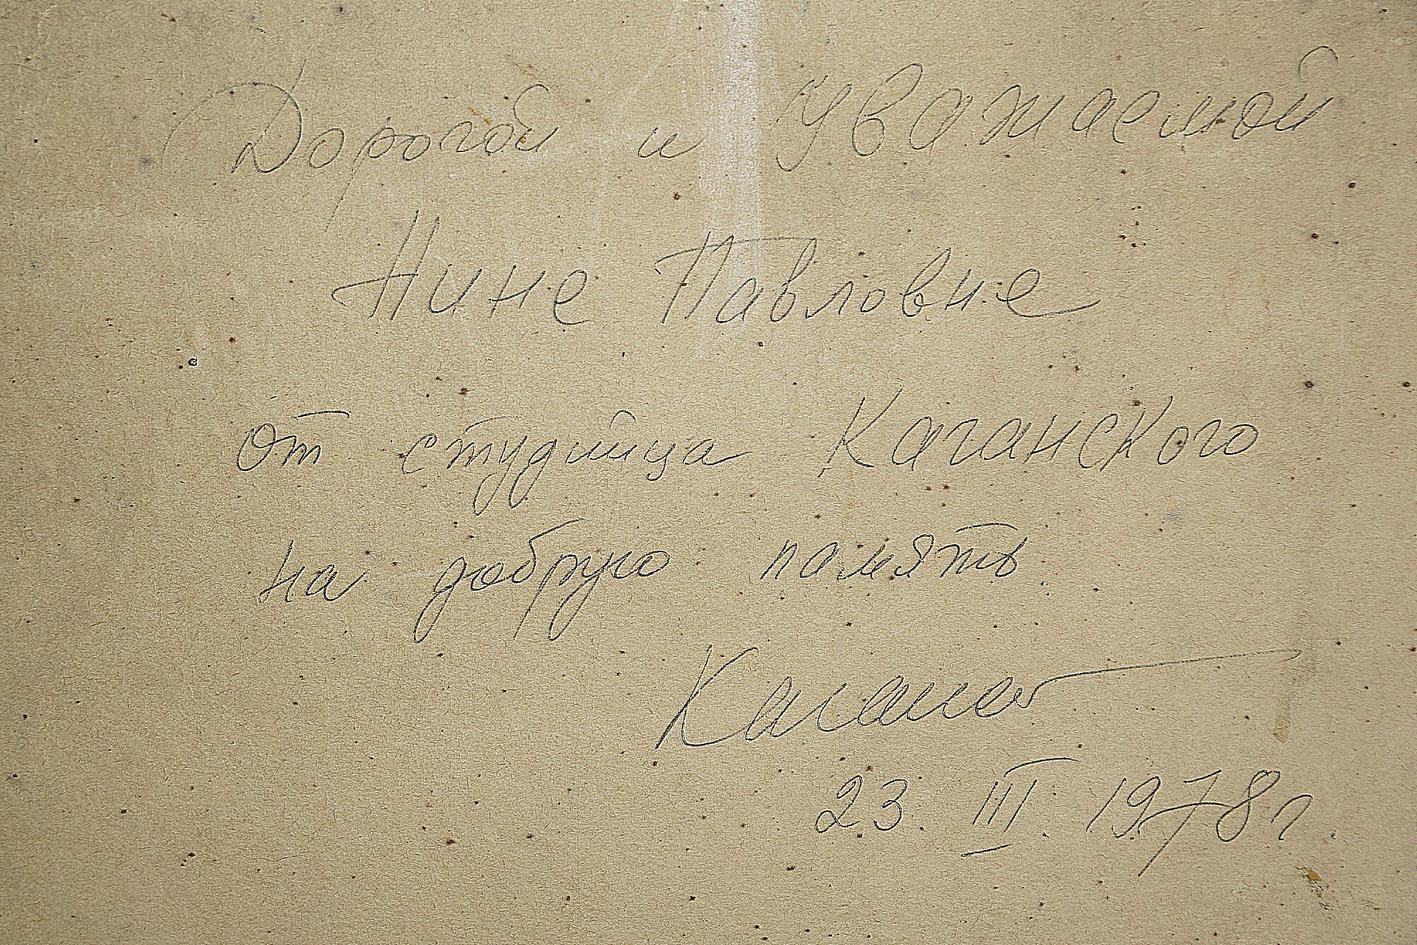 Дорогой и уважаемой
Нине Павловне
от студийца Каганского
на добрую память.
23. III. 1978 г.